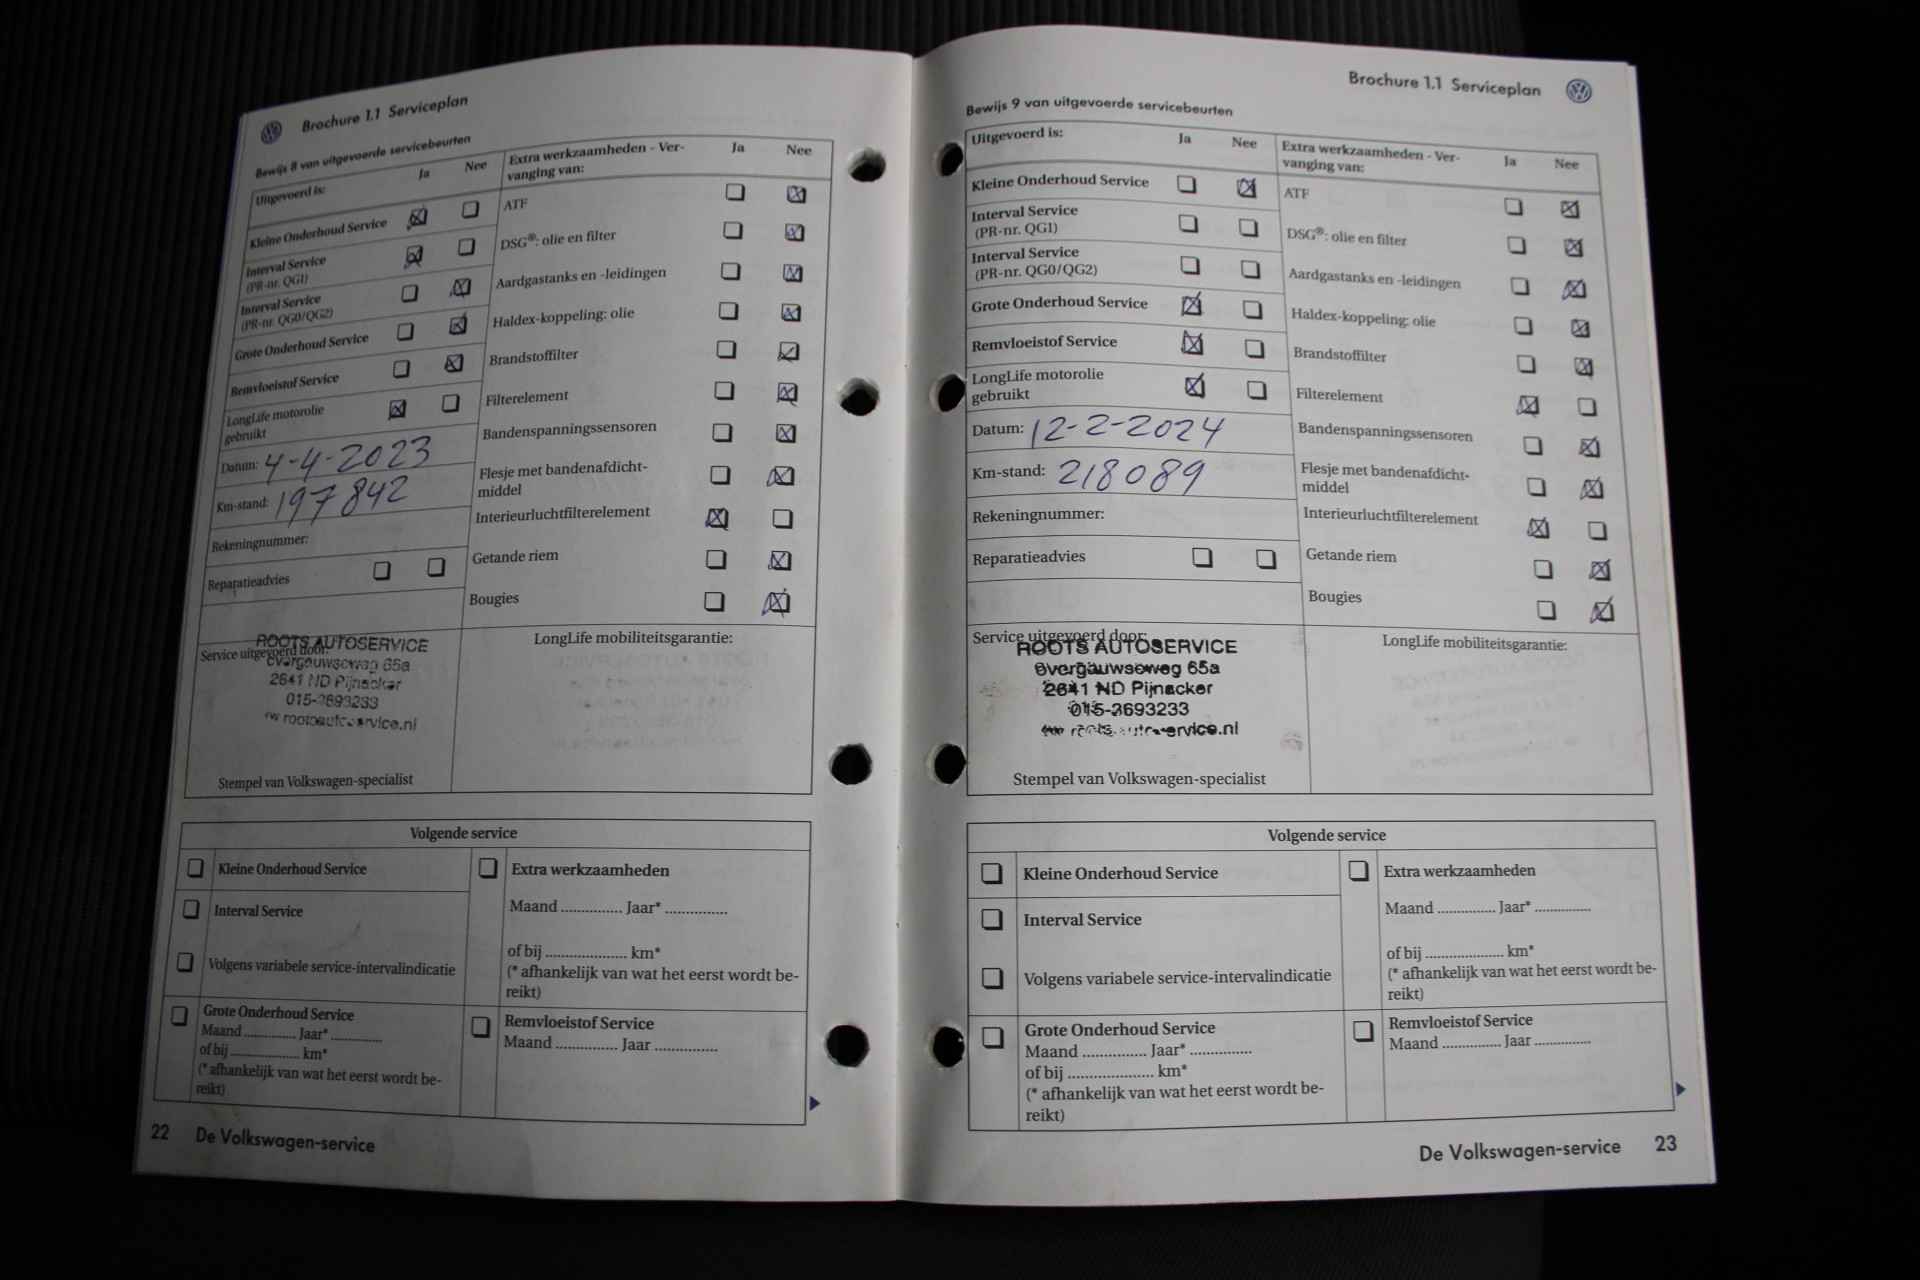 Brochure 1.1 Serviceplan
Bewijs 8 van uitgevoerde servicebeurten
Uitgevoerd is:
Ja
Nee
Kleine Onderhoud Service
Interval Service
(PR-nr. QG1)
Interval Service
(PR-nr. QG0/QG2)
Grote Onderhoud Service
Remvloeistof Service
LongLife motorolie
gebruikt
Datum: 4-4-2023
Km-stand: 197842
Rekeningnummer:
Reparatieadvies
Extra werkzaamheden - Ver-
vanging van:
Ja
Nee
ATF
DSG®: olie en filter
Aardgastanks en -leidingen
Haldex-koppeling: olie
Brandstoffilter
Filterelement
Bandenspanningssensoren
Flesje met bandenafdicht-
middel
Interieurluchtfilterelement
Getande riem
Bougies
Service uitgevoerd door:
ROOTS AUTOSERVICE
overgauwseweg 65a
2641 ND Pijnacker
015-3693233
Stempel van Volkswagen-specialist
LongLife mobiliteitsgarantie:
Volgende service
Kleine Onderhoud Service
Interval Service
Volgens variabele service-intervalindicatie
Grote Onderhoud Service
Maand .............. Jaar* ..............
of bij ................... km*
(* afhankelijk van wat het eerst wordt be-
reikt)
Extra werkzaamheden
Maand .............. Jaar* ..............
of bij ................... km*
(* afhankelijk van wat het eerst wordt be-
reikt)
Remvloeistof Service
Maand .............. Jaar ..............
22 De Volkswagen-service
Brochure 1.1 Serviceplan
Bewijs 9 van uitgevoerde servicebeurten
Uitgevoerd is:
Ja
Nee
Kleine Onderhoud Service
Interval Service
(PR-nr. QG1)
Interval Service
(PR-nr. QG0/QG2)
Grote Onderhoud Service
Remvloeistof Service
LongLife motorolie
gebruikt
Datum: 12-2-2024
Km-stand: 218089
Rekeningnummer:
Reparatieadvies
Extra werkzaamheden - Ver-
vanging van:
Ja
Nee
ATF
DSG®: olie en filter
Aardgastanks en -leidingen
Haldex-koppeling: olie
Brandstoffilter
Filterelement
Bandenspanningssensoren
Flesje met bandenafdicht-
middel
Interieurluchtfilterelement
Getande riem
Bougies
Service uitgevoerd door:
ROOTS AUTOSERVICE
overgauwseweg 65a
2641 ND Pijnacker
015-3693233
Stempel van Volkswagen-specialist
LongLife mobiliteitsgarantie:
Volgende service
Kleine Onderhoud Service
Interval Service
Volgens variabele service-intervalindicatie
Grote Onderhoud Service
Maand .............. Jaar* ..............
of bij ................... km*
(* afhankelijk van wat het eerst wordt be-
reikt)
Extra werkzaamheden
Maand .............. Jaar* ..............
of bij ................... km*
(* afhankelijk van wat het eerst wordt be-
reikt)
Remvloeistof Service
Maand .............. Jaar ..............
De Volkswagen-service 23